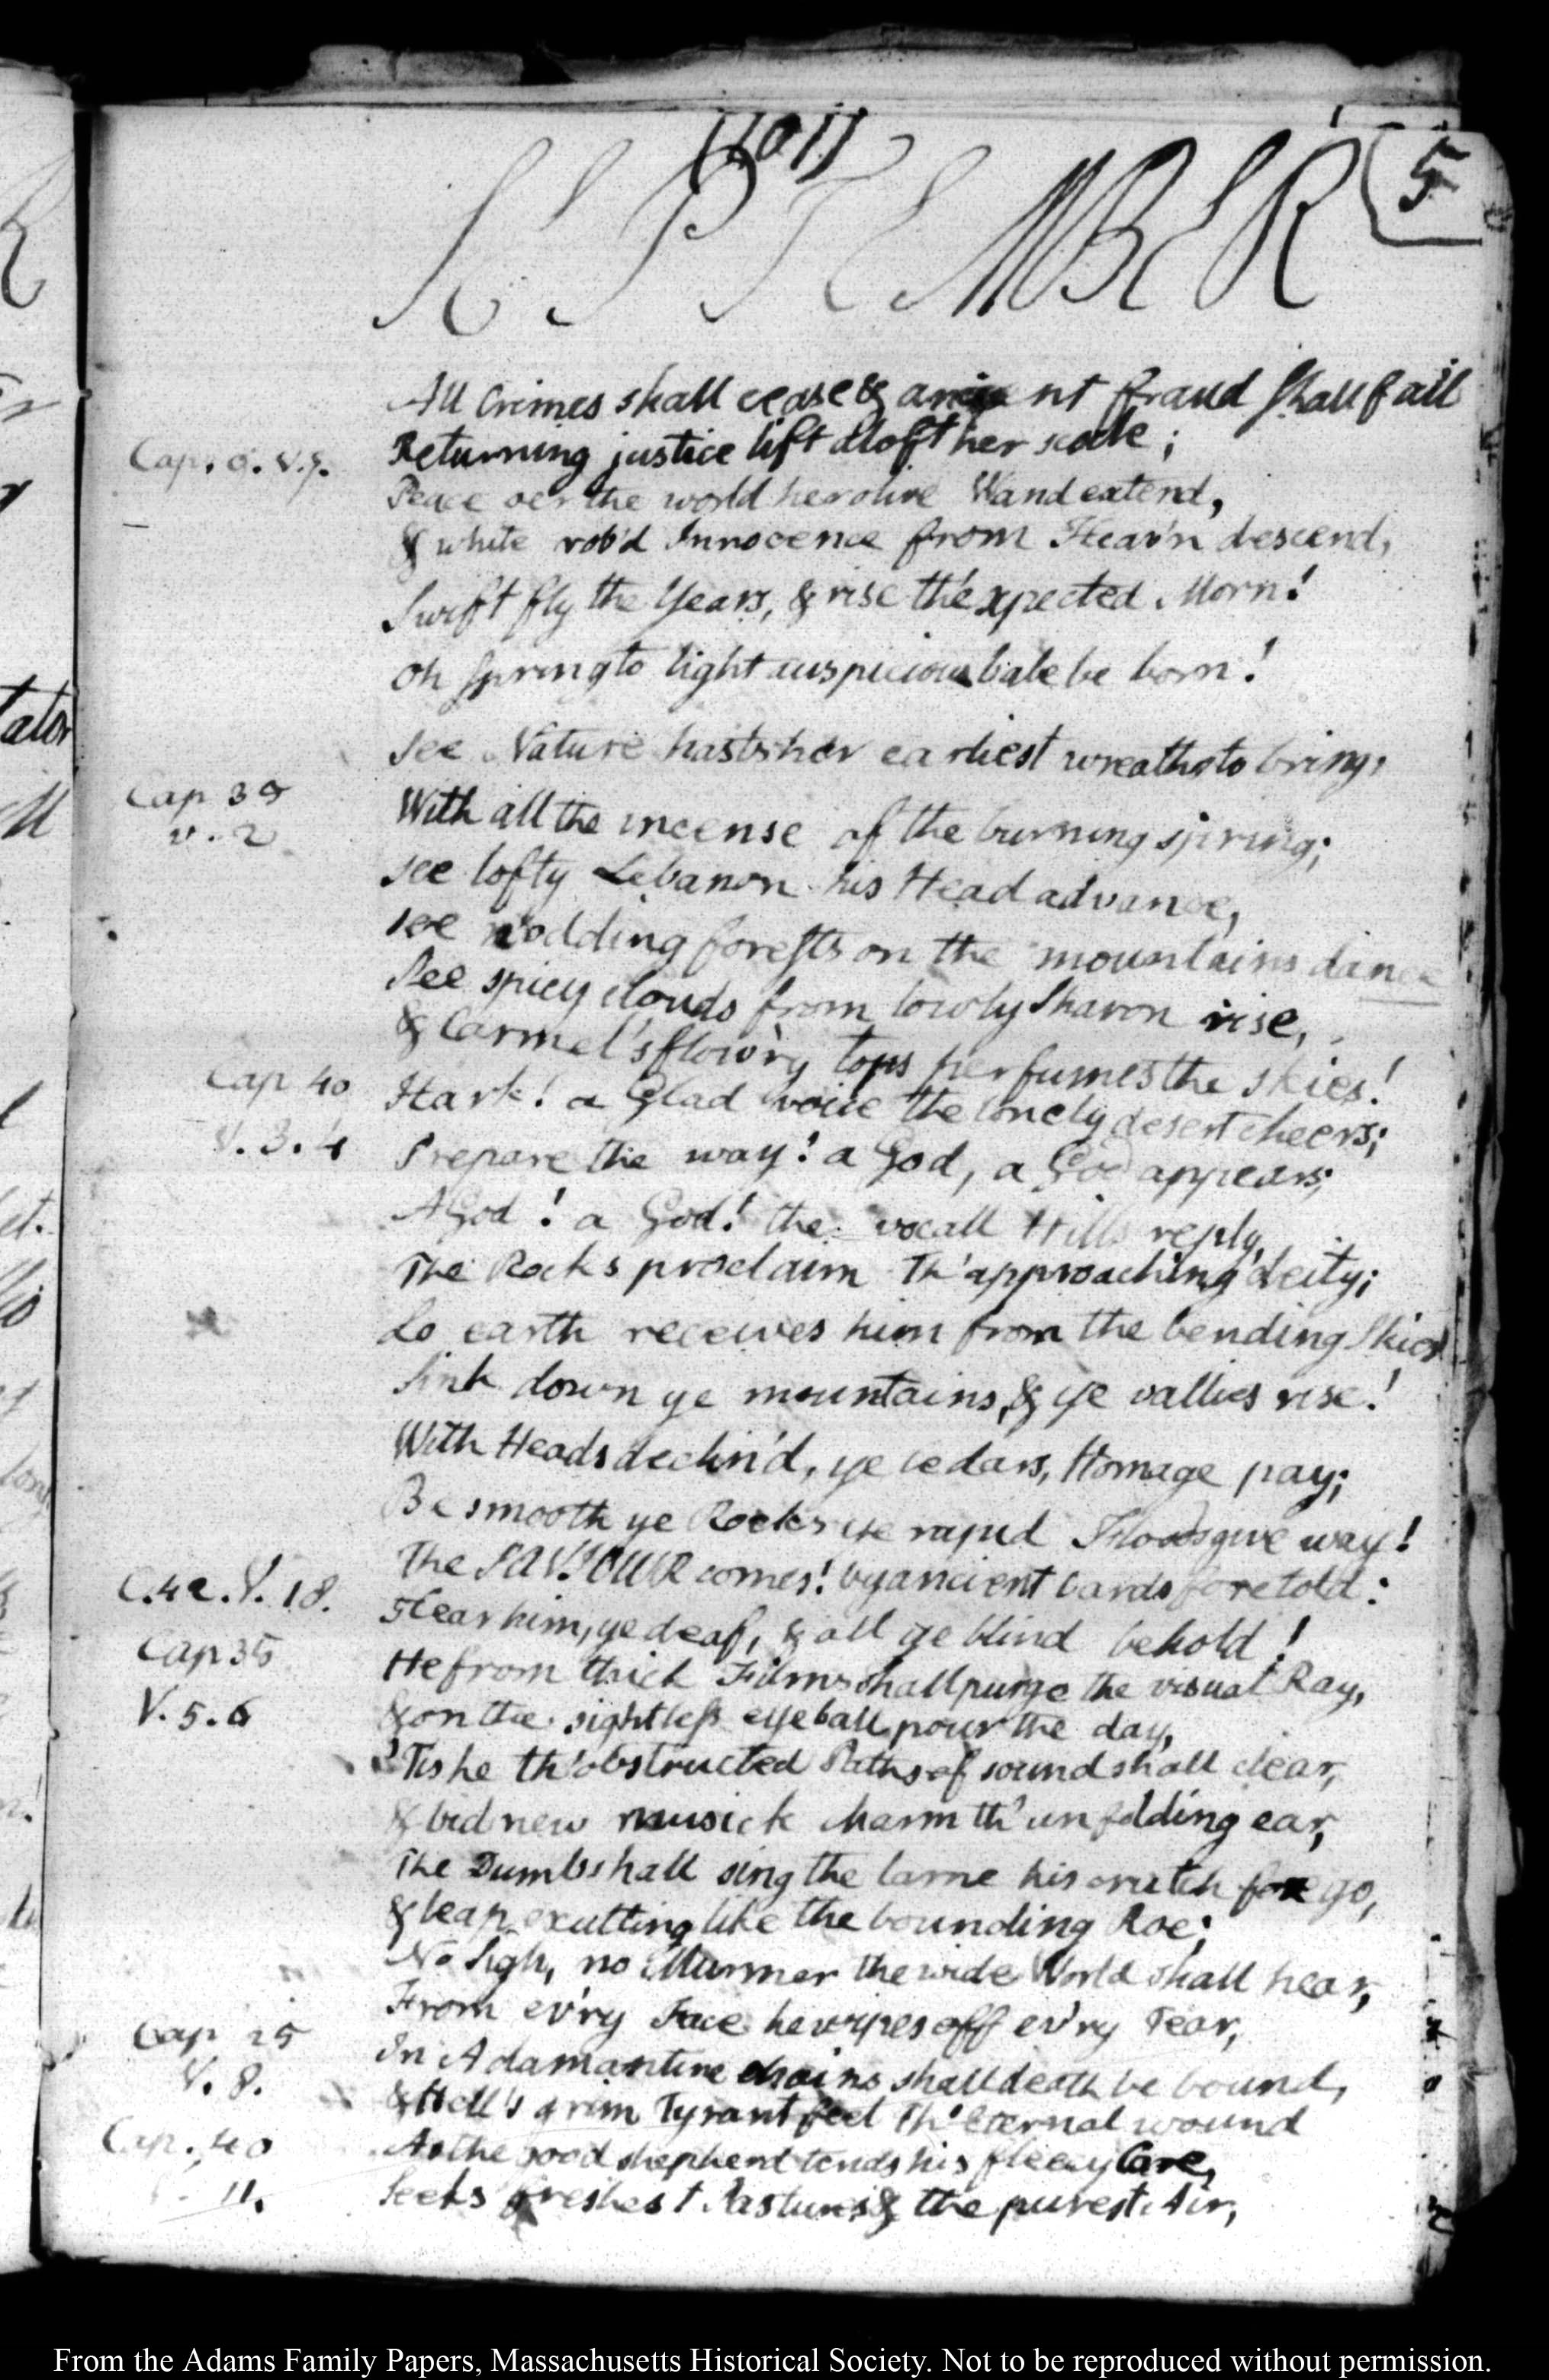 SEPTEMBER
5
All Crimes shall cease & ancient fraud shall fail
Returning justice lift aloft her scale;
Cap. 9. v. 7.
Peace oer the world her olive Wand extend,
& white rob'd Innocence from Heav'n descend,
Swift fly the Years, & rise th'expected Morn!
Oh spring to light auspicious babe be born!
See Nature hasts her earliest wreaths to bring,
Cap 35
v. 2
With all the incense of the burning spring;
See lofty Lebanon his Head advance,
see nodding forests on the mountains dance
See spicy clouds from lowly Sharon rise,
& Carmel's flow'ry tops perfumes the skies!
Cap 40
V. 3. 4
Hark! a Glad voice the lonely desert cheers;
Prepare the way! a God, a God appears;
A God! a God! the vocall Hills reply,
The Rocks proclaim Th'approaching deity;
Lo earth receives him from the bending Skies
Sink down ye mountains, & ye vallies rise!
With Heads declin'd, ye cedars, Homage pay;
Be smooth ye Rocks ye rapid Floods give way!
The SAVIOUR comes! by ancient bards foretold:
C. 42. V. 18.
Hear him, ye deaf, & all ye blind behold!
Cap 35
V. 5. 6
He from thick Films shall purge the visual Ray,
& on the sightless eyeball pour the day,
'Tis he th'obstructed Paths of sound shall clear,
& bid new musick charm th'unfolding ear,
The Dumb shall sing the lame his crutch forego,
& leap exulting like the bounding Roe;
No Sigh, no Murmer the wide World shall hear,
From ev'ry Face he wipes off ev'ry Tear,
Cap 25
V. 8.
In Adamantine chains shall death be bound,
& Hell's grim Tyrant feel Th'Eternal wound
Cap. 40
11.
As the good shepherd tends his fleecy Care,
Seeks freshest Pastures & the purest Air,
From the Adams Family Papers, Massachusetts Historical Society. Not to be reproduced without permission.